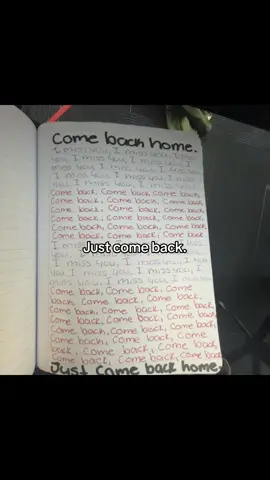 Come back home.
I miss you, I miss you, I miss
you, I miss you, I miss you, I
miss you, I miss you, I miss you,
I miss you, I miss you, I miss
you, I miss you, I miss you.
Come back, Come back, Come back,
Come back, Come back, Come back,
Come back, Come back, Come back,
Come back, Come back, Come back,
Come back, Come back, Come back,
Come back, Come back, Come back
Just come back.
I miss you, I miss you, I
miss you, I miss you, I miss
you, I miss you, I miss you, I
miss you, I miss you, I miss you
Come back, Come back, Come
back, Come back, Come back,
Come back, Come back, Come back,
Come back, Come back, Come back,
Come back, Come back, Come back,
Come back, Come back, Come
back, Come back, Come back,
Come back, Come back, Come back
Just Come back home.